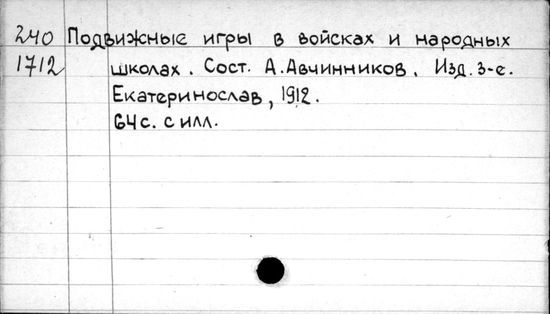 240 Подвижные игры в войсках и народных
1712 школах. Сост. А.Авчинников. Изд. 3-е.
Екатеринослав, 1912.
64с. с илл.